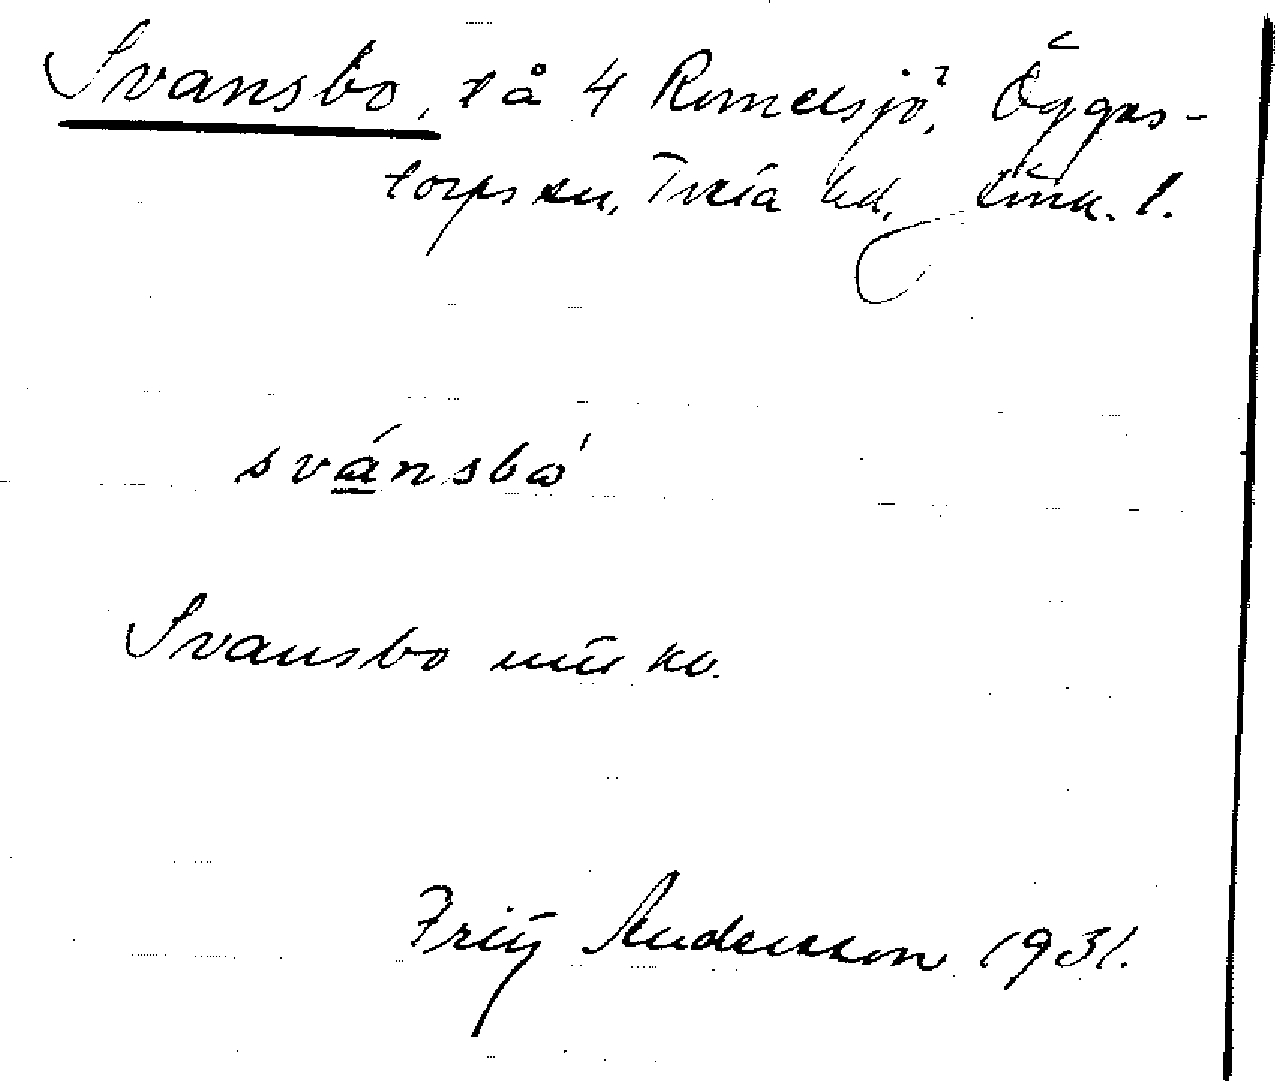 Svansbo, t å 4 Romelsjö, Öggas-
torps sn, Tveta hd, Jönk. l.
svánsbo'
Svansbo mtl kv.
Fritz Andersson 1931.